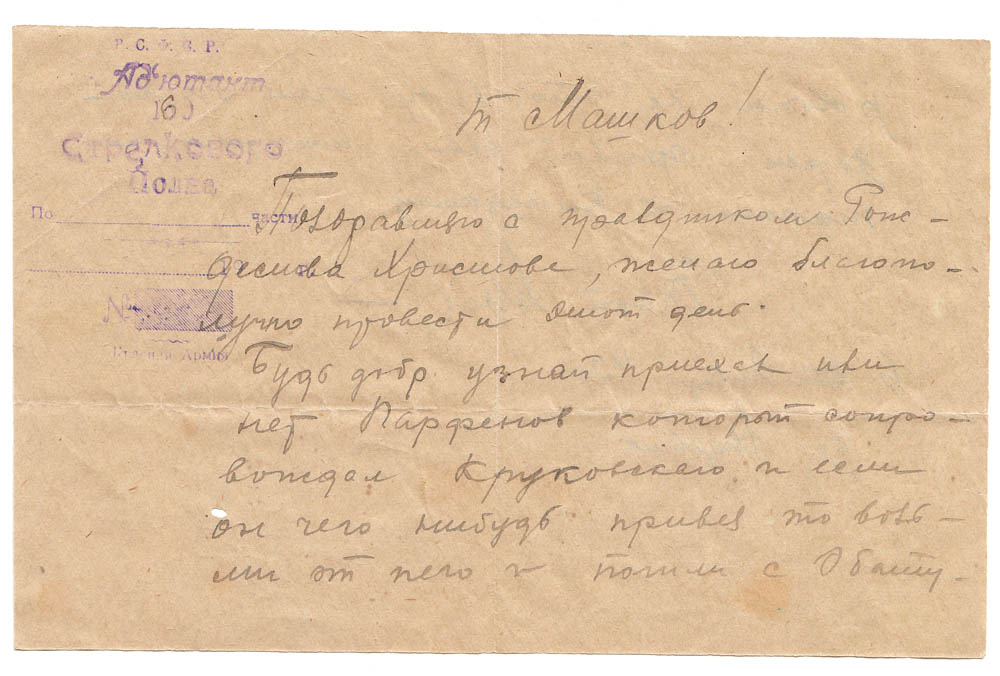 Р. С. Ф. С. Р.
Адъютант
160
Стрелкового
Полка
По части
№
Красной Армии
т Машков!
Поздравляю с праздником Рож-
дества Христове, желаю благопо-
лучно провести этот день.
Будь добр узнай приехал или
нет Парфенов который сопро-
вождал Круковского и если
он чего нибудь привез то возь-
ми от него и пошли с